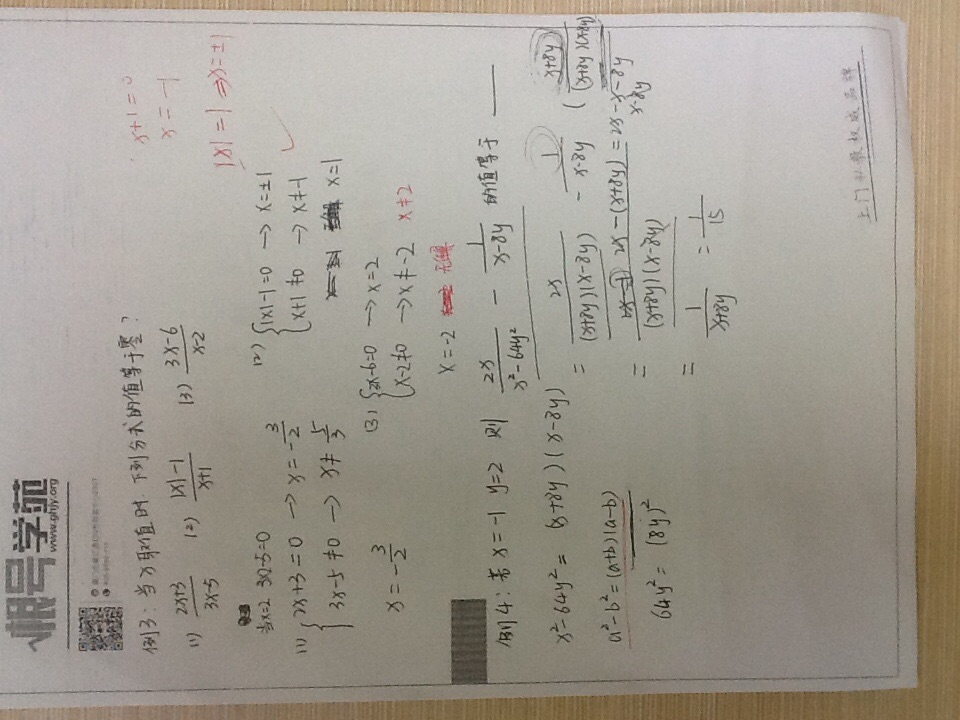 学苑
www.ghjy.org
例3：当x取值时，下列分式的值等于零？
(1) (2x+3)/(3x-5) (2) (|x|-1)/(x+1) (3) (3x-6)/(x-2)
x+1=0
x=-1
|x|=1 ⇒ x=±1
当x=2 3x-5=0
(1) {2x+3=0 → x=-3/2
3x-5≠0 → x≠5/3
x=-3/2
(2) {|x|-1=0 → x=±1
x+1≠0 → x≠-1
x=1
(3) {3x-6=0 → x=2
x-2≠0 → x≠-2 x≠2
x=-2 无解
例4：若x=-1 y=2 则 2x/(x²-64y²) - 1/(x-8y) 的值等于 ____
x²-64y²=(x+8y)(x-8y)
a²-b²=(a+b)(a-b)
64y²=(8y)²
= 2x/((x+8y)(x-8y)) - 1/(x-8y) (x+8y)/((x+8y)(x+8y))
= (2x-(x+8y))/((x+8y)(x-8y)) = 2x-x-8y
x-8y
= 1/(x+8y) = 1/15
上门礼最权威品牌